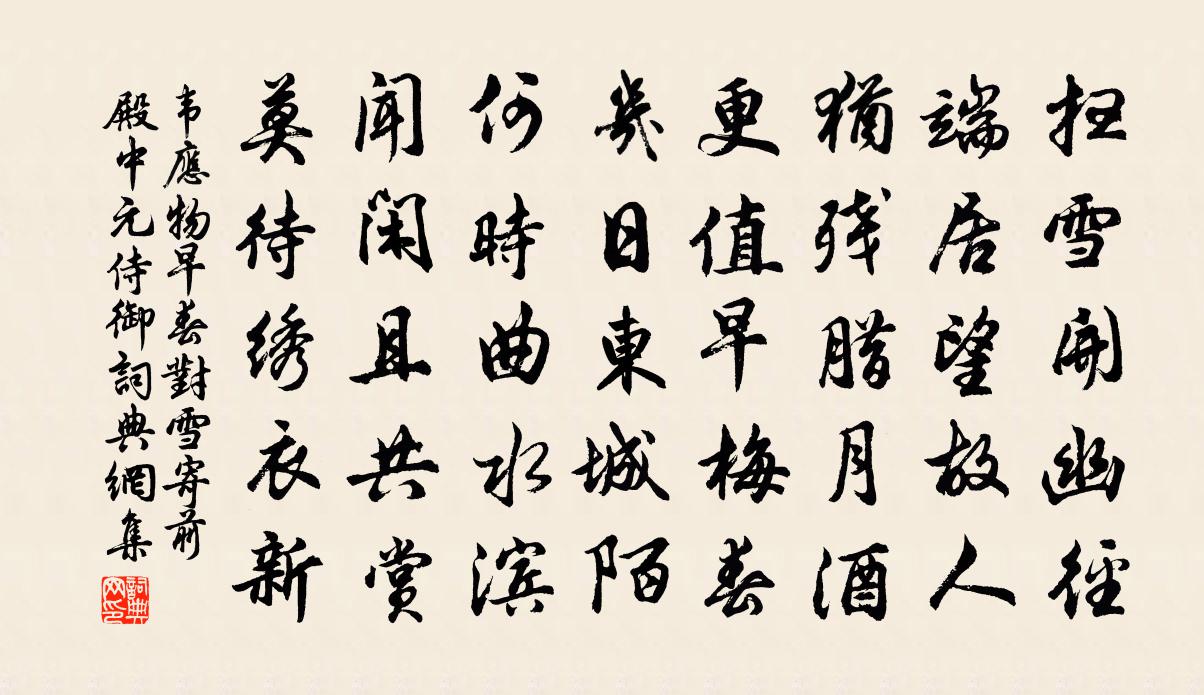 扫雪開幽徑
端居望故人
猶残腊月酒
更值早梅春
幾日東城陌
何時曲水滨
闻闲且共赏
莫待绣衣新
韦應物早春對雪寄前
殿中元侍御詞典網集
詞典网印